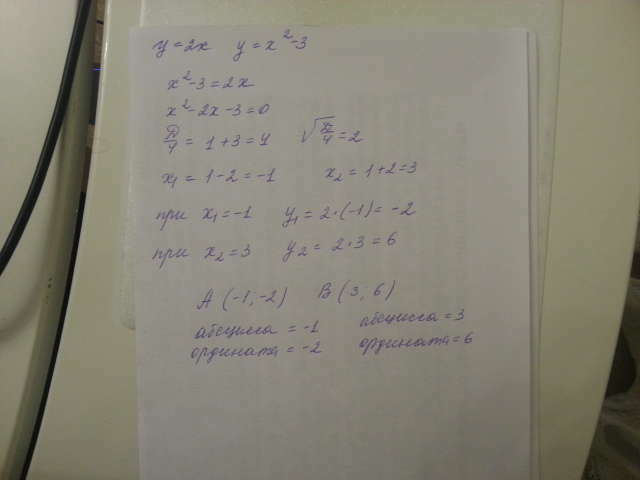 y = 2x y = x² - 3
x² - 3 = 2x
x² - 2x - 3 = 0
D/4 = 1 + 3 = 4 √D/4 = 2
x₁ = 1 - 2 = -1 x₂ = 1 + 2 = 3
при x₁ = -1 y₁ = 2·(-1) = -2
при x₂ = 3 y₂ = 2·3 = 6
A (-1; -2) B (3, 6)
абсцисса = -1 абсцисса = 3
ордината = -2 ордината = 6